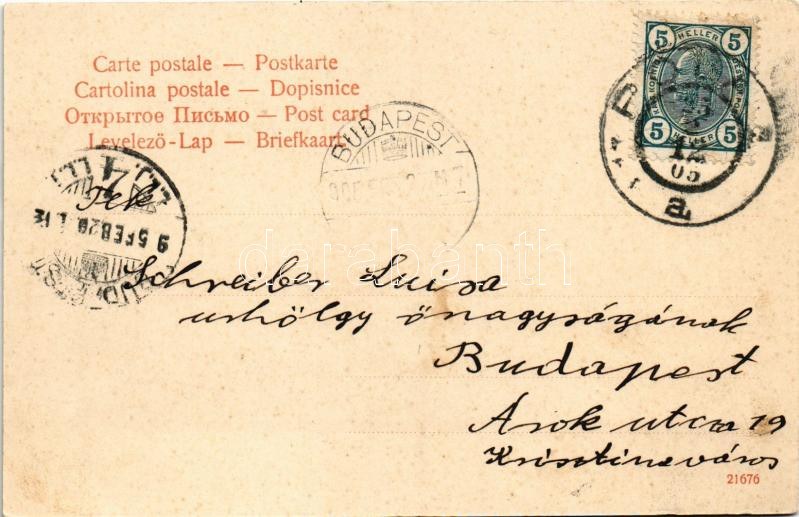 Carte postale — Postkarte
Cartolina postale — Dopisnice
Открытое Письмо — Post card
Levelező-Lap — Briefkaart
5 HELLER 5
5 HELLER 5
12
05
a
BUDAPEST
905 FEB 20
Tek
Schreiber Luisa
urhölgy őnagyságának
Budapest
Árok utca 19
Krisztinaváros
21676
darabanth